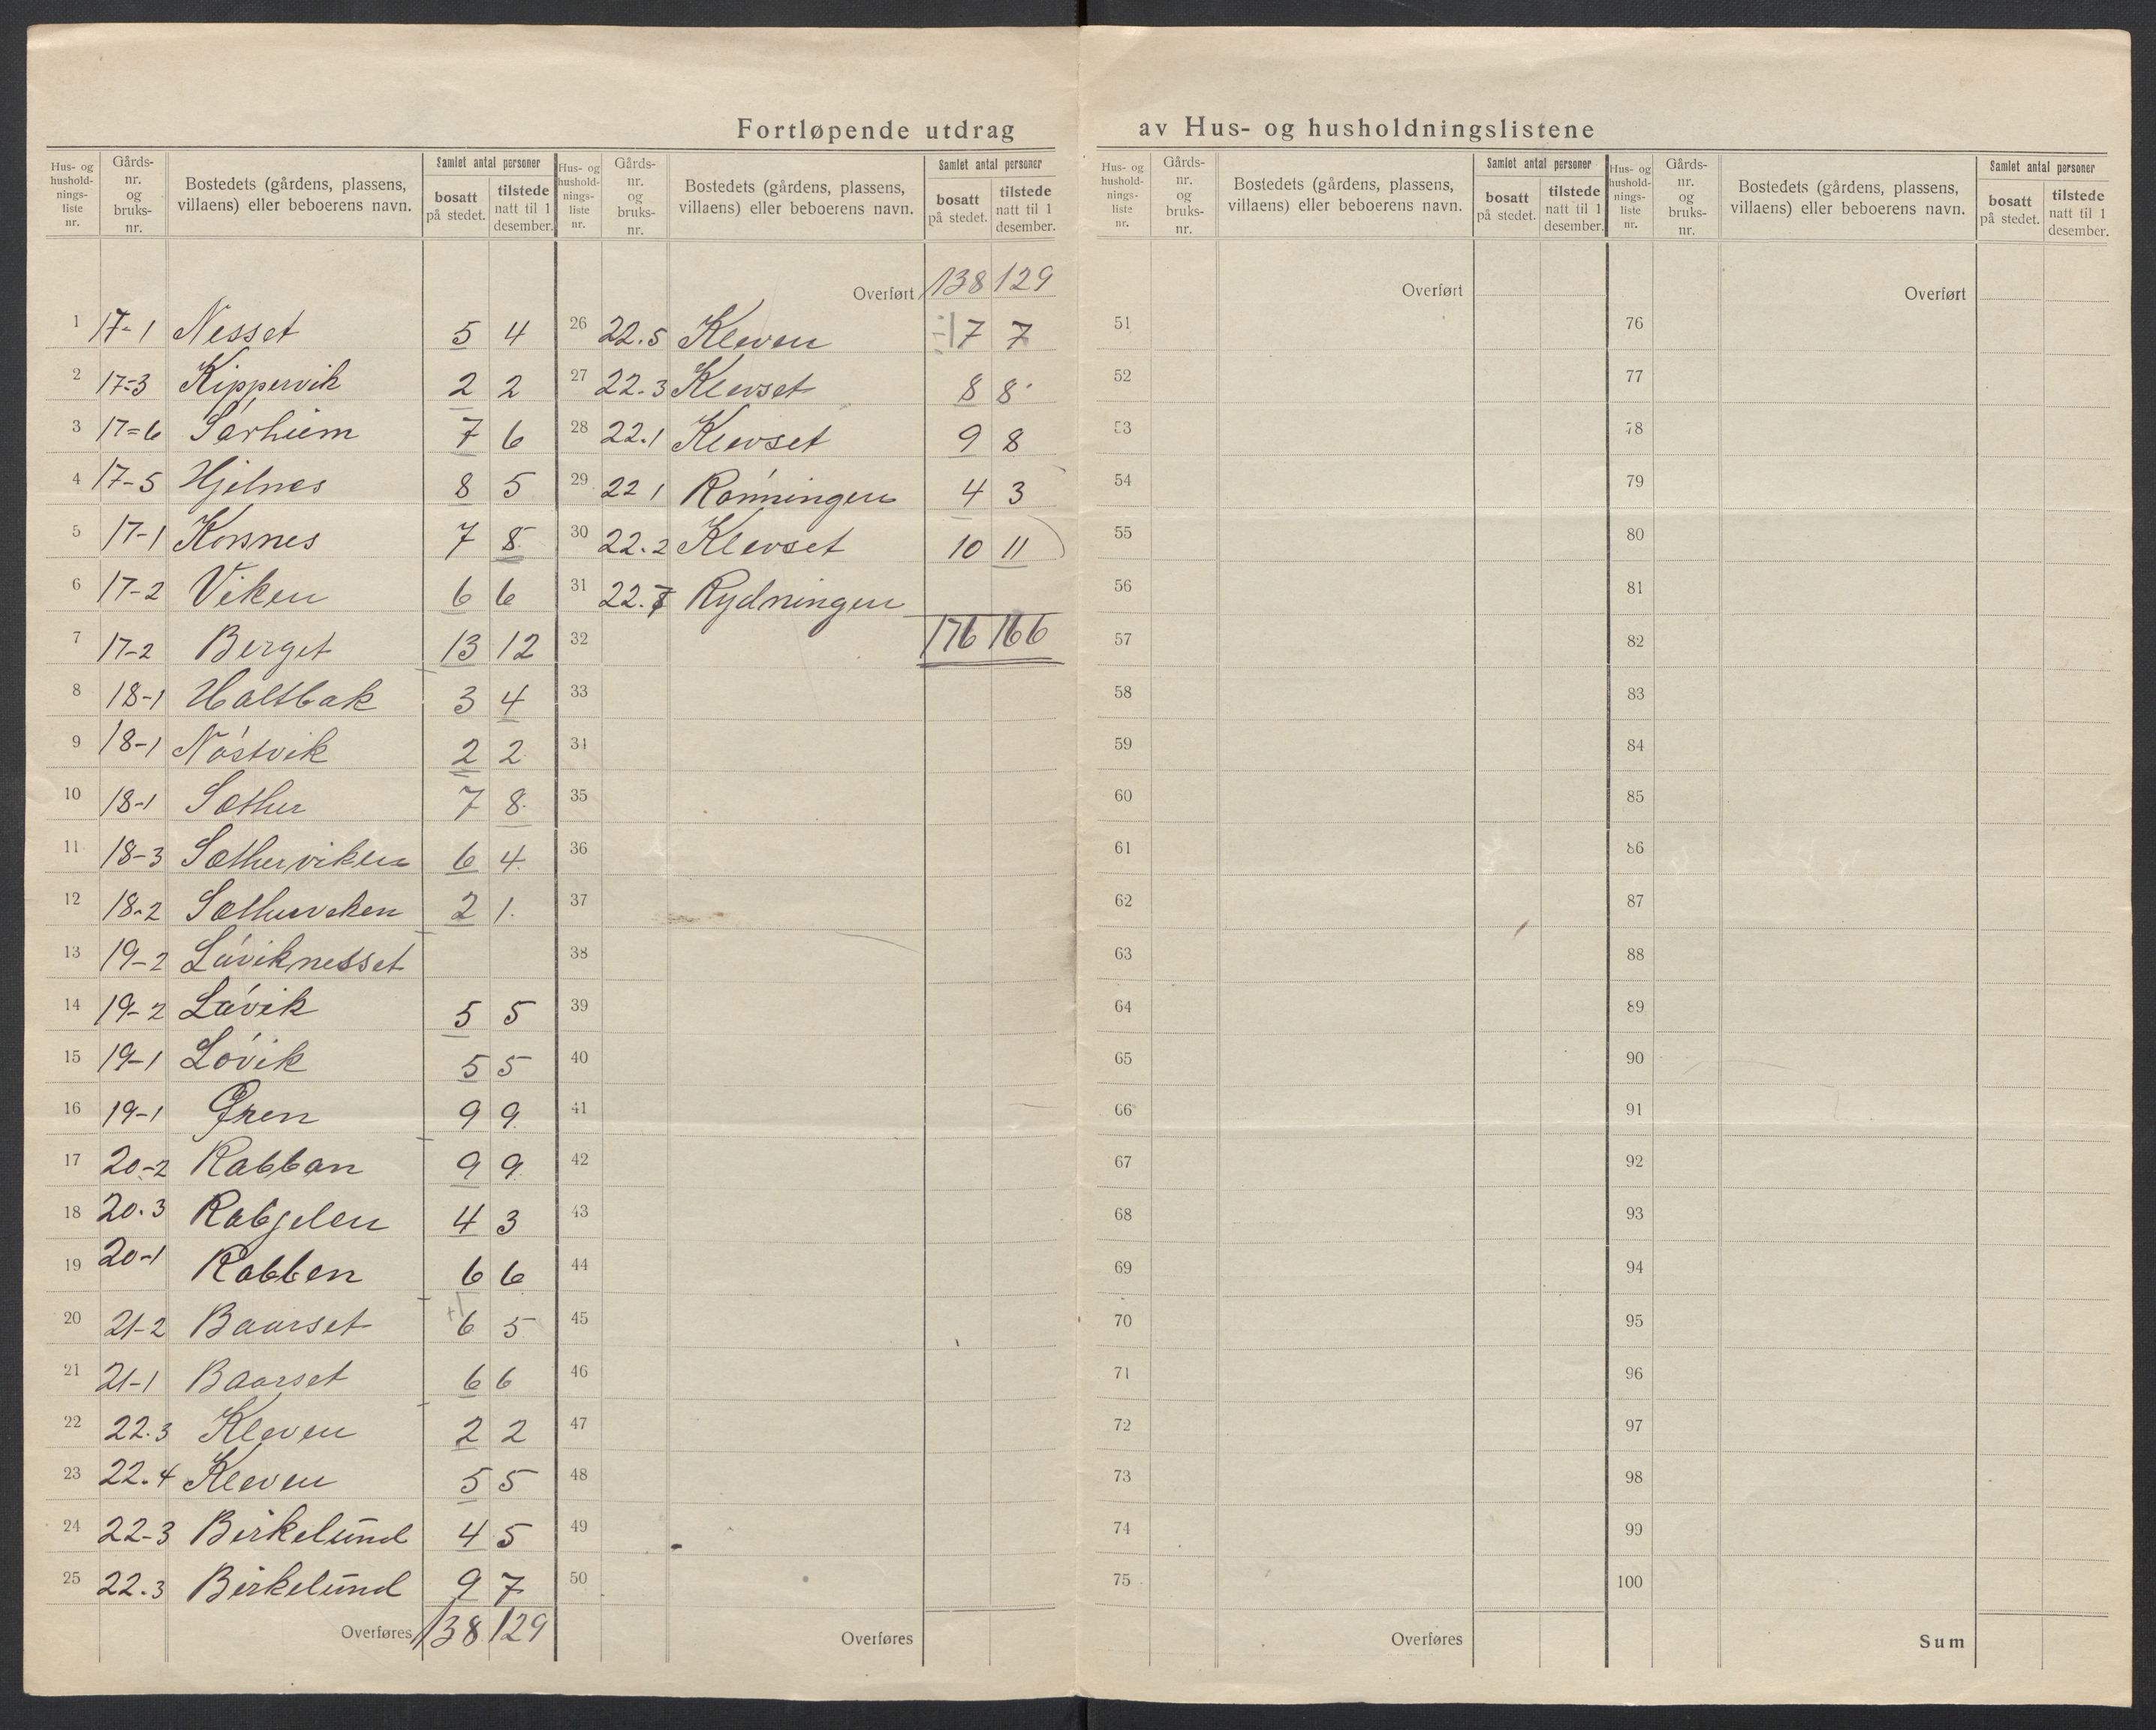 Fortløpende utdrag av Hus- og husholdningslistene
Hus- og hushold-nings-liste nr. Gårds-nr. og bruks-nr. Bostedets (gårdens, plassens, villaens) eller beboerens navn. Samlet antal personer bosatt på stedet. tilstede natt til 1 desember.
1 17-1 Nesset 5 4
2 17-3 Kippervik 2 2
3 17=6 Sørheim 7 6
4 17-5 Hjelnes 8 5
5 17-1 Korsnes 7 8
6 17-2 Viken 6 6
7 17-2 Berget 13 12
8 18-1 Holtbak 3 4
9 18-1 Nóstvik 2 2
10 18-1 Sæther 7 8
11 18-3 Sætherviken 6 4
12 18-2 Sætherviken 2 1
13 19-2 Lóviknesset
14 19-2 Lóvik 5 5
15 19-1 Lóvik 5 5
16 19-1 9 9
17 20-2 Rabban 9 9
18 20.3 Rabjelen 4 3
19 20-1 Rabben 6 6
20 21-2 Baarset +1 6 5
21 21-1 Baarset 6 6
22 22.3 Kleven 2 2
23 22.4 Kleven 5 5
24 22-3 Birkelund 4 5
25 22.3 Birkelund 9 7
Overføres 138 129
Hus- og hushold-nings-liste nr. Gårds-nr. og bruks-nr. Bostedets (gårdens, plassens, villaens) eller beboerens navn. Samlet antal personer bosatt på stedet. tilstede natt til 1 desember.
Overført 138 129
26 22.5 Kleven 7 7
27 22.3 Klevset 8 8
28 22.1 Klevset 9 8
29 22 1 Rónningen 4 3
30 22.2 Klevset 10 11
31 22.7 Rydningen
32 176 166
33
34
35
36
37
38
39
40
41
42
43
44
45
46
47
48
49
50
Overføres
Hus- og hushold-nings-liste nr. Gårds-nr. og bruks-nr. Bostedets (gårdens, plassens, villaens) eller beboerens navn. Samlet antal personer bosatt på stedet. tilstede natt til 1 desember.
Overført
51
52
53
54
55
56
57
58
59
60
61
62
63
64
65
66
67
68
69
70
71
72
73
74
75
Overføres
Hus- og hushold-nings-liste nr. Gårds-nr. og bruks-nr. Bostedets (gårdens, plassens, villaens) eller beboerens navn. Samlet antal personer bosatt på stedet. tilstede natt til 1 desember.
Overført
76
77
78
79
80
81
82
83
84
85
86
87
88
89
90
91
92
93
94
95
96
97
98
99
100
Sum